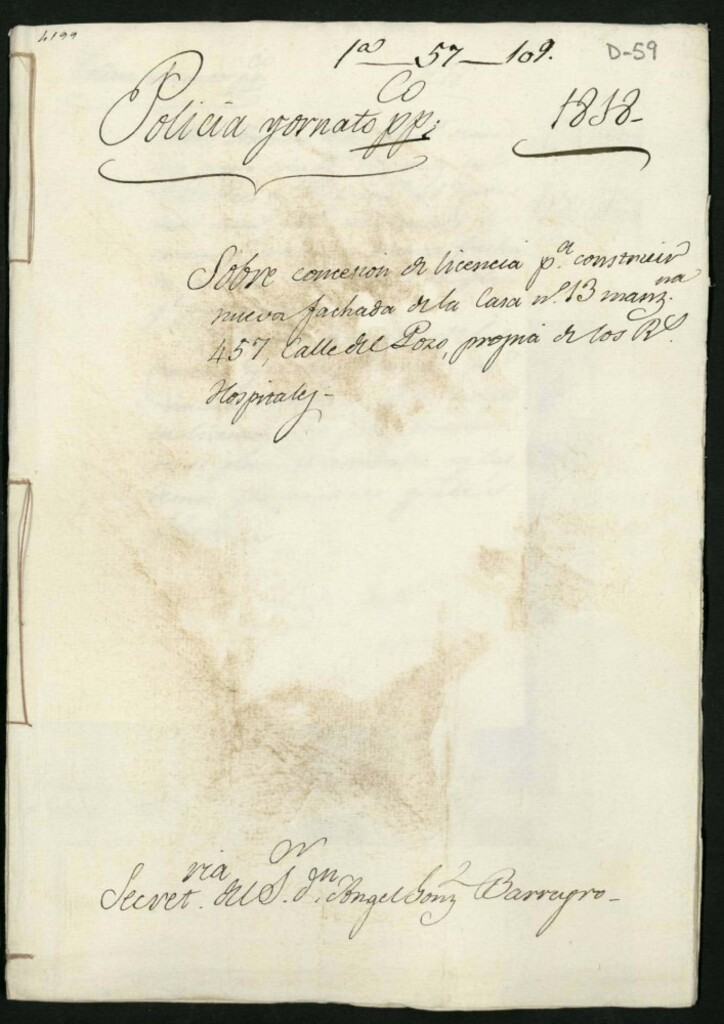 4199
1ª—57—109.
D-59
Policia y ornato ppco;
1818-
Sobre concesion de licencia pª. construir
nueva fachada de la Casa nº. 13 manzna.
457, Calle del Pozo, propia de los Rs.
Hospitales-
Secretria. del Sor. Dn. Angel Gonz Barreyro-